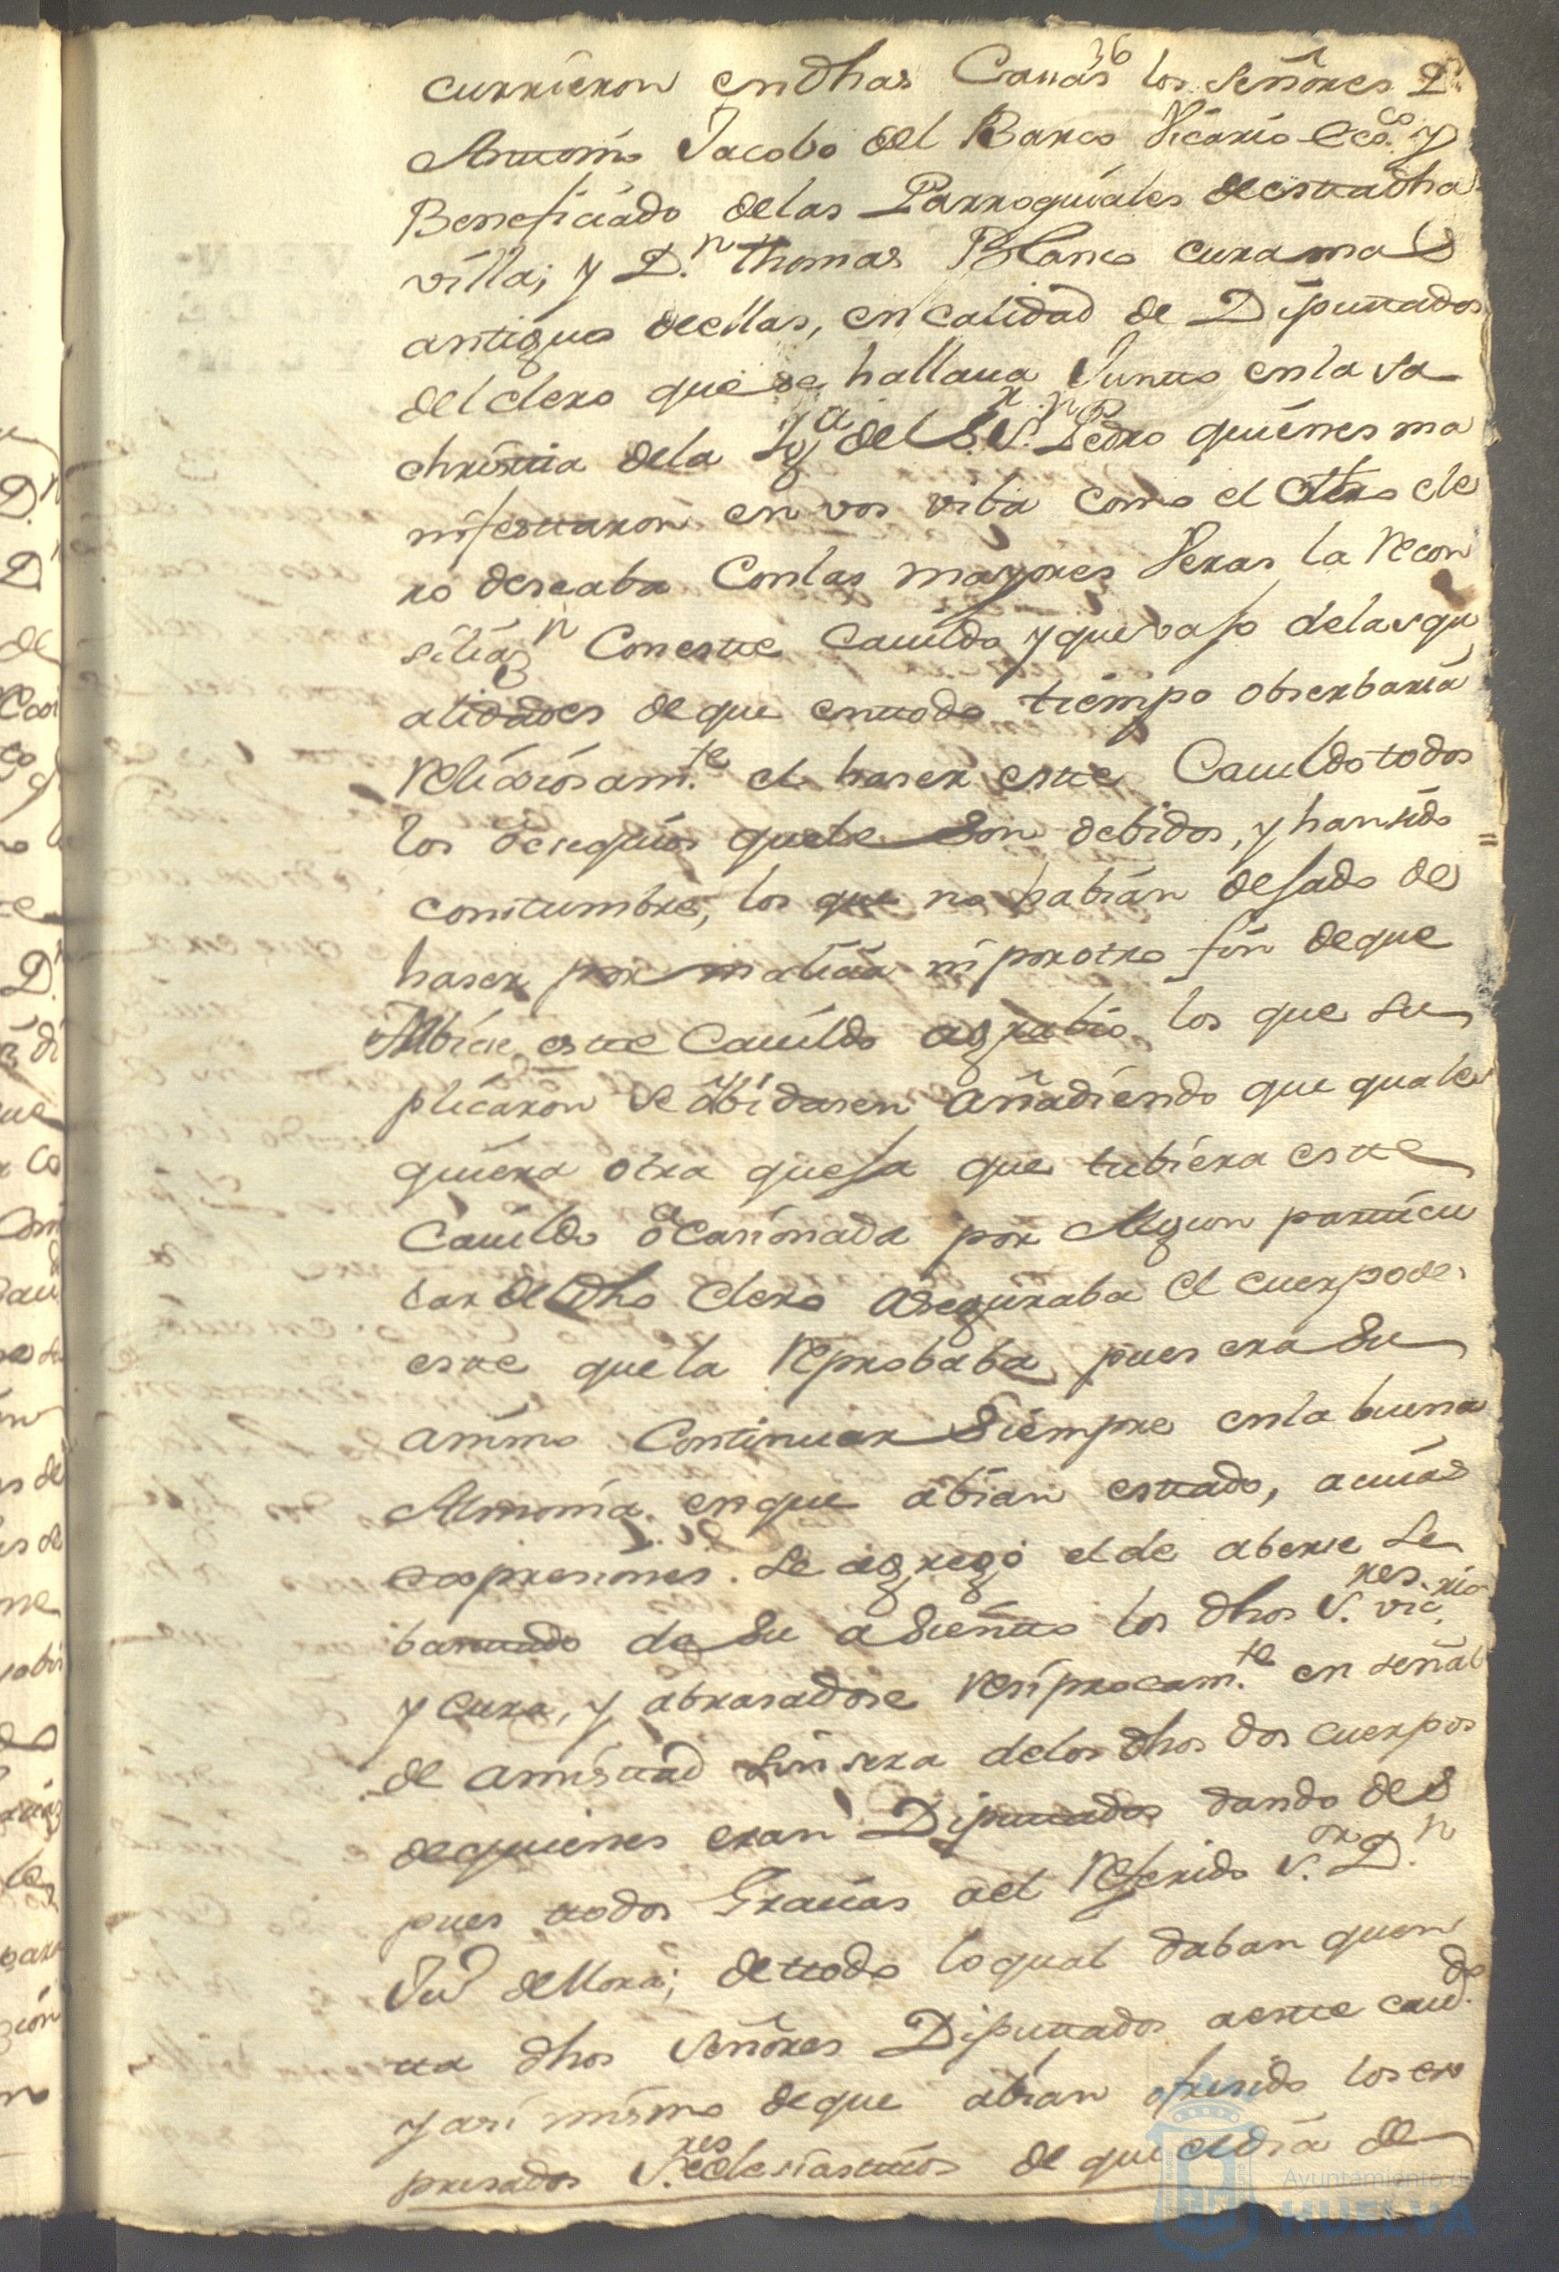 36
currieron en dhas Cauas los Señores D.n
Antonio Jacobo del Barco Vicario ecco. y
Beneficiado de las Parroquiales de esta dha
villa; y D.n Thomas Blanco cura mas
antiguo de ellas, en calidad de Diputtados
del clero que se hallaua Juntto en la sa
christtia de la Yg.a del S.r S.n Pedro quienes ma
nifesttaron en vos viba como el dho cle
ro deseaba Con las mayores Veras la recon
siliaz.n Con estte Cauildo y que vajo de las qu
alidades de que en ttodo tiempo obserbaria
religiosam.te el haser estte Cauildo todos
los obsequios que le son debidos, y han sido
constumbre, los que no habian dejado de
haser por malicia ni por otro fin de que
rresibiese estte Cauildo agrabio, los que su
plicaron se olbidasen añadiendo que quales
quiera otra queja que tubiera estte
Cauildo ocasionada por Algun partticu
lar de dho Clero aseguraba el cuerpo de
estte que la reprobaba, pues era su
animo Continuar siempre en la buena
Armonia en que abian esttado, a cuias
expresiones. se agregó el de aberse le
banttado de su asientto los dhos S.res vic.rio
y cura, y abrasadose resiprocam.te en señal
de amisttad sinsera de los dhos dos cuerpos
de quienes eran Diputtados dando des
pues ttodos Gracias ael referido S.or D.n
Ju.o de Mora; de ttodo lo qual daban quen
tta dhos Señores Diputtados a estte cauil.do
y asi mismo de que abian ofresido los ex
presados S.res eclesiastticos de que el dia de
Ayuntamiento de
HUELVA